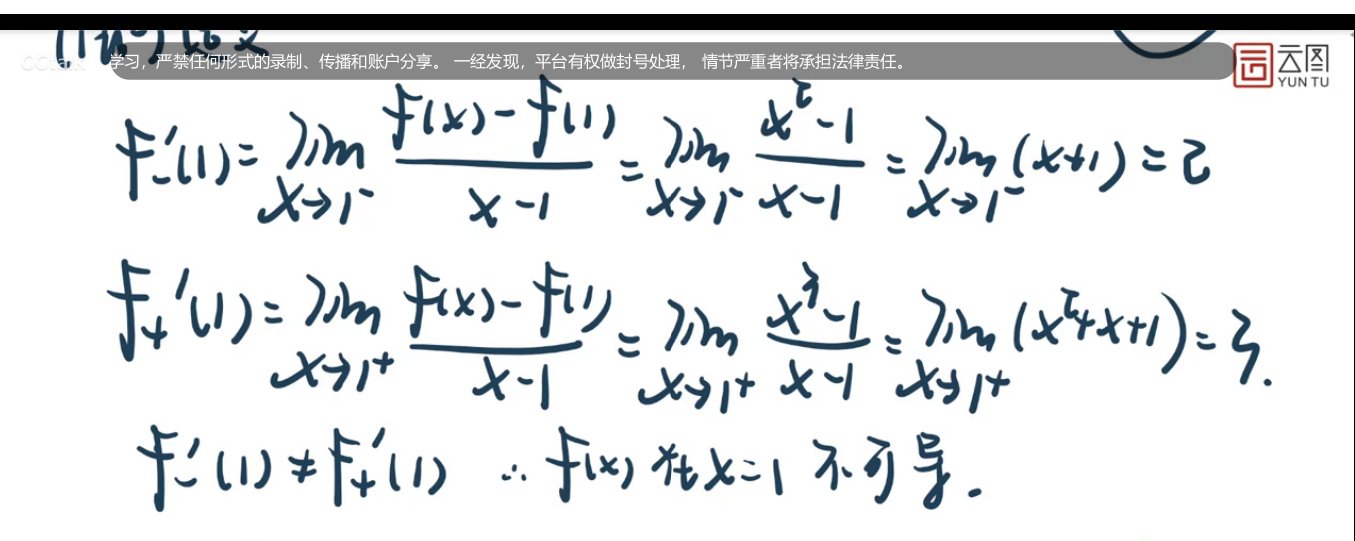 学习，严禁任何形式的录制、传播和账户分享。 一经发现，平台有权做封号处理， 情节严重者将承担法律责任。
云图
YUN TU
f₋′(1) = lim_{x→1⁻} (f(x) − f(1))/(x − 1) = lim_{x→1⁻} (x² − 1)/(x − 1) = lim_{x→1⁻} (x+1) = 2
f₊′(1) = lim_{x→1⁺} (f(x) − f(1))/(x − 1) = lim_{x→1⁺} (x³ − 1)/(x − 1) = lim_{x→1⁺} (x² + x + 1) = 3.
f₋′(1) ≠ f₊′(1) ∴ f(x) 在 x=1 不可导.